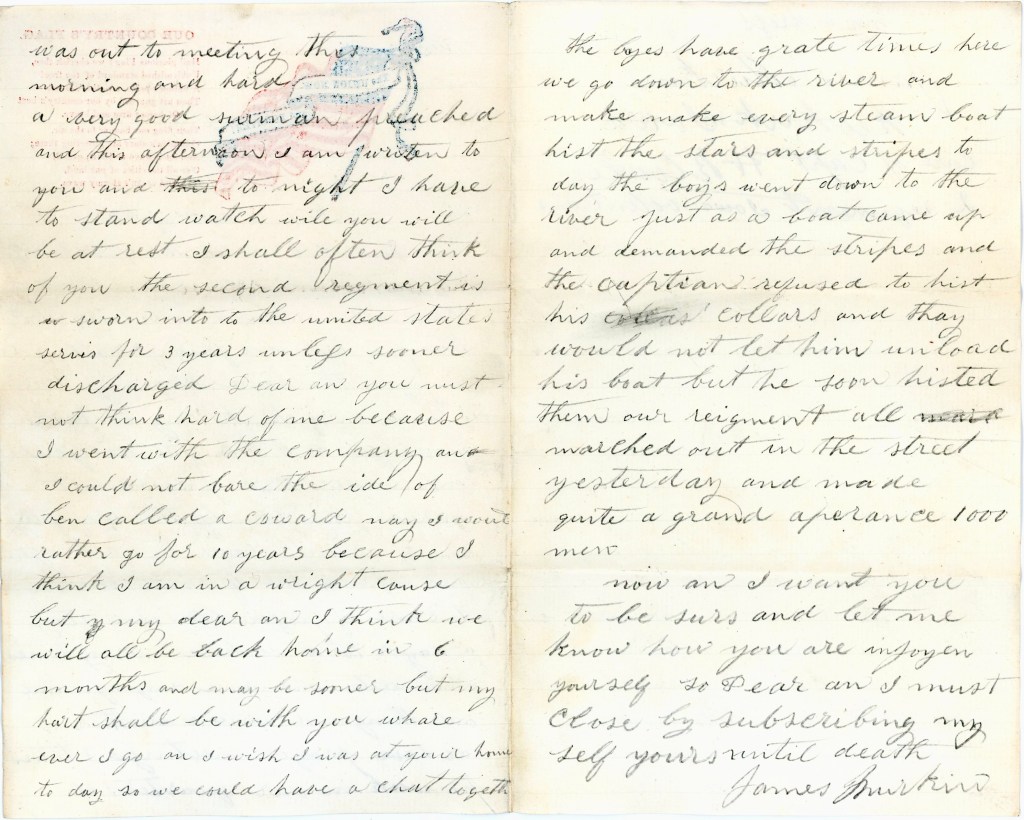 OUR COUNTRY'S FLAG.
was out to meeting this
morning and hard
a very good surman preached
and this afternoon I am writen to
you and this to night I have
to stand watch wile you will
be at rest I shall often think
of you the second regment is
sworn into to the united states
servis for 3 years unless sooner
discharged Dear an you must
not think hard of me because
I went with the company and
I could not bare the ide of
ben called a coward nay I woul
rather go for 10 years because I
think I am in a wright cause
but my dear an I think we
will all be back home in 6
months and may be sooner but my
hart shall be with you whare
ever I go an I wish I was at your home
to day so we could have a chat togeth
the boyes have grate times here
we go down to the river and
make make every steam boat
hist the stars and stripes to
day the boys went down to the
river just as a boat came up
and demanded the stripes and
the captian refused to hist
his collars and thay
would not let him unload
his boat but he soon histed
them our reigment all
marched out in the street
yesterday and made
quite a grand aperance 1000
men
now an I want you
to be surs and let me
know how you are injoyen
yourself so Dear an I must
close by subscribing my
self yours until death
James